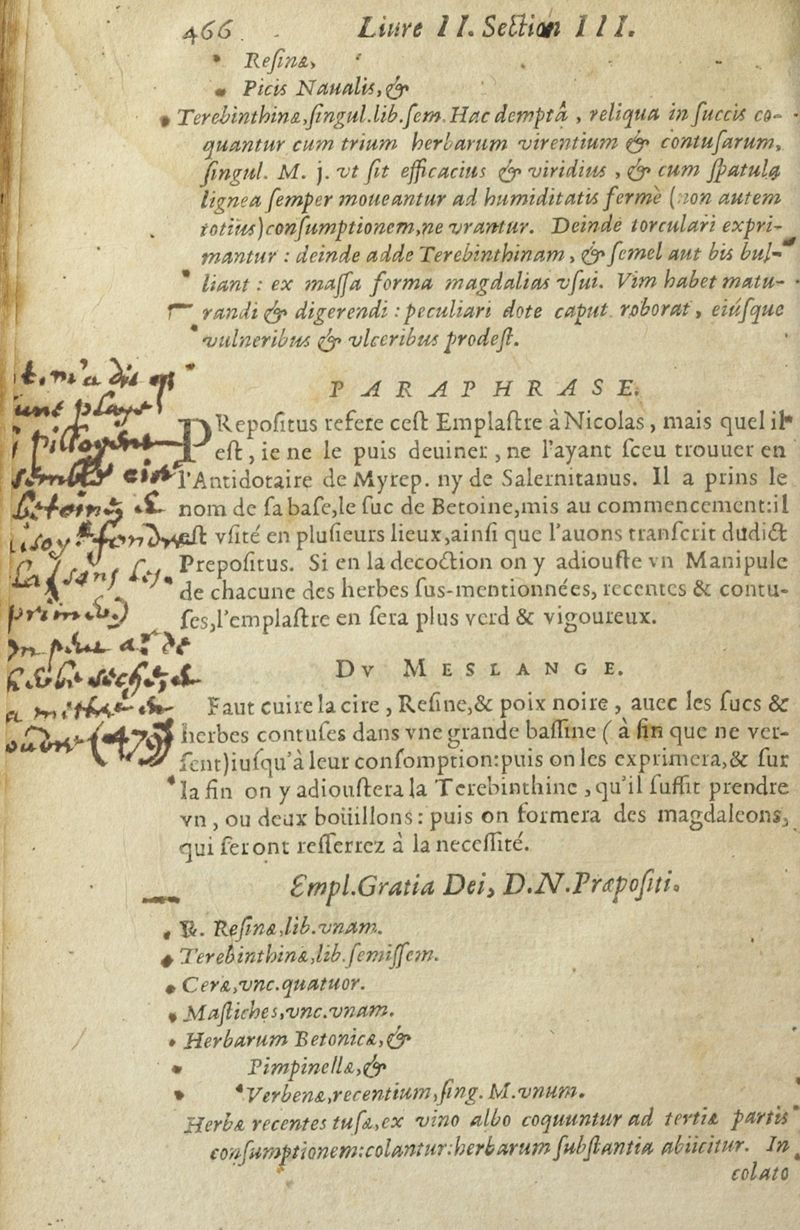 466. Liure II. Section III.
Resinæ,
Picis Naualis, &
Terebinthinæ, singul. lib. sem. Hac demptâ, reliqua in succis co-
quantur cum trium herbarum virentium & contusarum,
singul. M. j. vt sit efficacius & viridius, & cum spatula
lignea semper moueantur ad humiditatis fermè (non autem
totius) consumptionem, ne vrantur. Deinde torculari expri-
mantur : deinde adde Terebinthinam, & semel aut bis bul-
liant : ex massa forma magdalias vsui. Vim habet matu-
randi & digerendi : peculiari dote caput roborat, eiúsque
vulneribus & vlceribus prodest.
PARAPHRASE.
PRepositus refere cest Emplastre à Nicolas, mais quel il
est, ie ne le puis deuiner, ne l'ayant sceu trouuer en
l'Antidotaire de Myrep. ny de Salernitanus. Il a prins le
nom de sa base, le suc de Betoine, mis au commencement: il
est vsité en plusieurs lieux, ainsi que l'auons transcrit dudict
Prepositus. Si en la decoction on y adiouste vn Manipule
de chacune des herbes sus-mentionnées, recentes & contu-
ses, l'emplastre en sera plus verd & vigoureux.
Dv MESLANGE.
Faut cuire la cire, Resine, & poix noire, auec les sucs &
herbes contuses dans vne grande bassine ( à fin que ne ver-
sent) iusqu'à leur consomption: puis on les exprimera, & sur
la fin on y adioustera la Terebinthine, qu'il suffit prendre
vn, ou deux boüillons : puis on formera des magdaleons,
qui seront resserrez à la necessité.
Empl. Gratia Dei, D. N. Præpositi.
℞. Resinæ, lib. vnam.
Terebinthinæ, lib. semissem.
Ceræ, vnc. quatuor.
Mastiches, vnc. vnam.
Herbarum Betonicæ, &
Pimpinellæ, &
Verbenæ, recentium, sing. M. vnum.
Herbæ recentes tusæ, ex vino albo coquuntur ad tertiæ partis
consumptionem: colantur: herbarum substantia abiicitur. In
colato